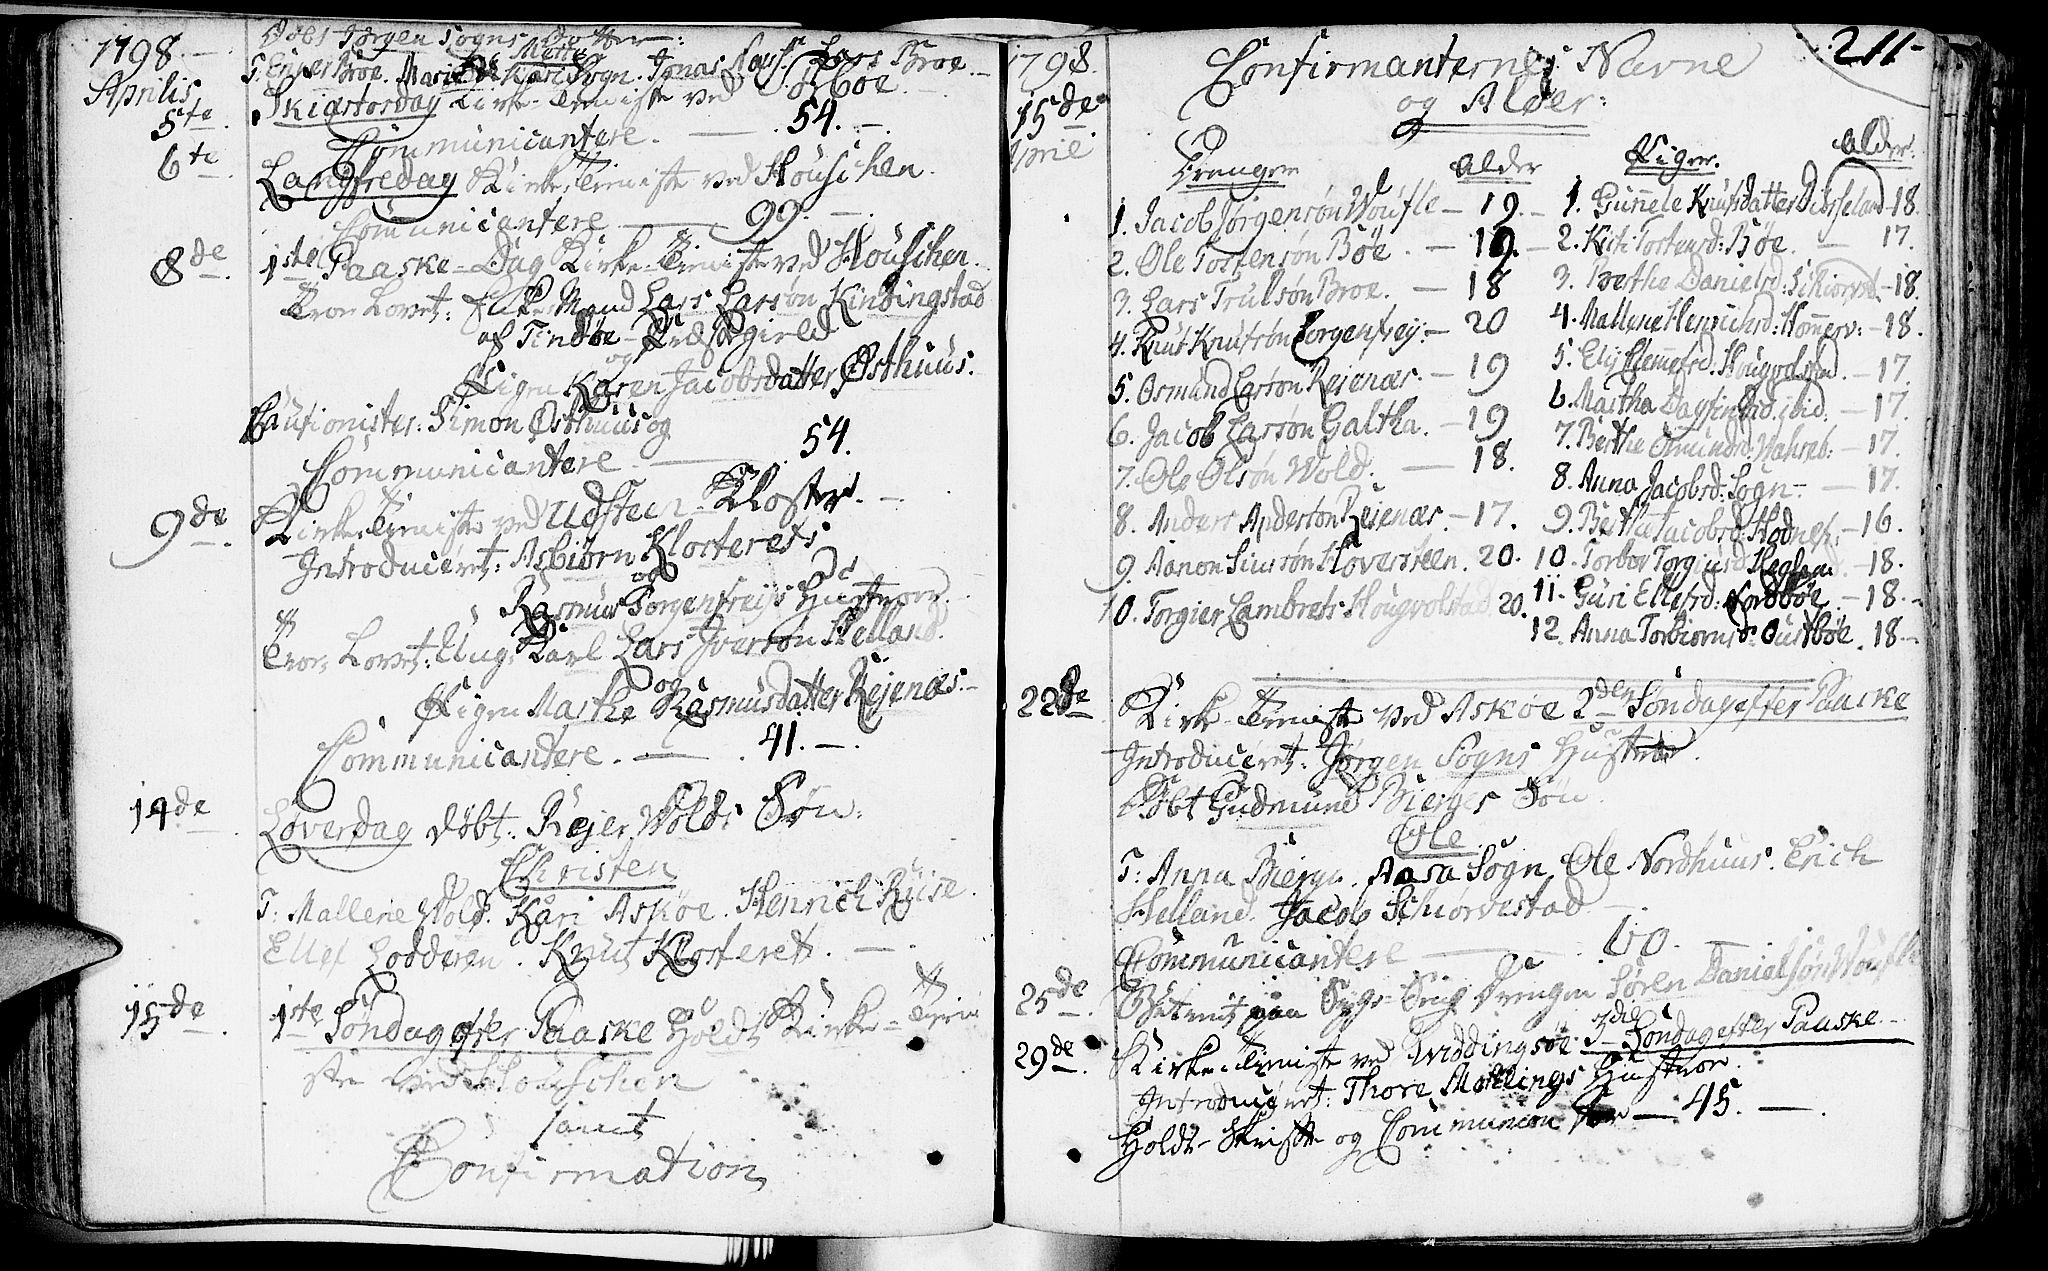 1798.
Aprilis
Døbt Jørgen Sogns Dotter:
Marta
T. Enger Broe. Marie Karl Sogn. Jonas Lars Broe.
5te. Skiærtorsdag Kirke-Tieniste ved Røboe.
Communicantere. — 54. —
6te. Langfredag Kirke-Tieniste ved Houschen.
Communicantere — 99. —
8de. 1ste Paaske-Dag Kirke-Tieniste ved Houschen.
Trorlovet: Enke-Mand Lars Larsøn Kindingstad
af Tindøe-Prestegield
og
Pigen Karen Jacobsdatter Østhuus.
Cautionister: Simon Østhuus og
Communicantere. — 54.
9de. Kirke-Tieniste ved Udsteen-Kloster. —
Introduceret: Asbiørn Klosterets
og
Rasmus Sorgenfreijs Hustroer.
Trorlovet: Ung-Karl Lars Iversøn Helland.
og
Pigen Marthe Rasmusdatter Rejenæs. —
Communicantere. — 41. —.
14de. Løverdag døbt: Rejer Wolds Søn:
Christen
T: Mallene Wold. Kari Askøe. Henrich Ruise.
Ellef Lodderen. Knut Klosteret. —
15de. 1ste Søndag efter Paaske Holdt Kirke-Tieni
ste ved Houschen
samt
Confirmation
1798.
15de
April
211
Confirmanternes Navne
og Alder:
Drenger Alder
1. Jacob Jørgensøn Woufle — 19. —
2. Ole Tostensøn Bøe. — 19. —
3. Lars Trulsøn Broe. — 18
4. Knut Knutsøn Sorgenfrej: — 20
5. Osmund Larsøn Rejenæs. — 19
6. Jacob Larsøn Galtha. — 19
7. Ole Olsøn Wold. — 18.
8. Anders Andersøn Rejenæs. — 17.
9. Aanon Siursøn Hoversteen. 20.
10. Torgier Lambrets Hougvolstad 20.
Piger. Alder.
1. Gunnele Knutsdatter Dusseland — 18.
2. Kist: Tostensd: Bøe. — 17.
3. Berthe Danielsd: Schiorvest. — 18.
4. Mallene Henrichsd: Hommerv: — 18.
5. Elij Clemetsd. Hougvolstad. — 17.
6. Martha Dagfindsd. ibid: — 17.
7. Berthe Osmundsd: Wahreb: — 17.
8. Anna Jacobsd: Sogn — 17.
9. Bertha Jacobsd: Hodnef: — 16.
10. Torbor Torgiusd: Hegland. — 18.
11. Guri Ellefsd: Nordbøe. — 18. —
12. Anna Torbiørnsd: Austbøe. 18 —
22de Kirke-Tieniste ved Askøe 2den Søndag efter Paaske
Introduceret: Jørgen Sogns Hustroe.
Døbt Gudmund Bierges Søn
Ole
T: Anna Bierge. Aasa Sogn. Ole Nordhuus. Erich
Helland. Jacob Schiørvestad —
Communicantere — 60. —
25de. Betient paa Syge-Seng Drengen Søren Danielsøn Woufle
29de. Kirke-Tieniste ved Hviddingsøe 3die Søndag efter Paaske. —
Introduceret: Thore Mællings Hustroe.
Holdt-Skrifte og Communion for — 45. —.